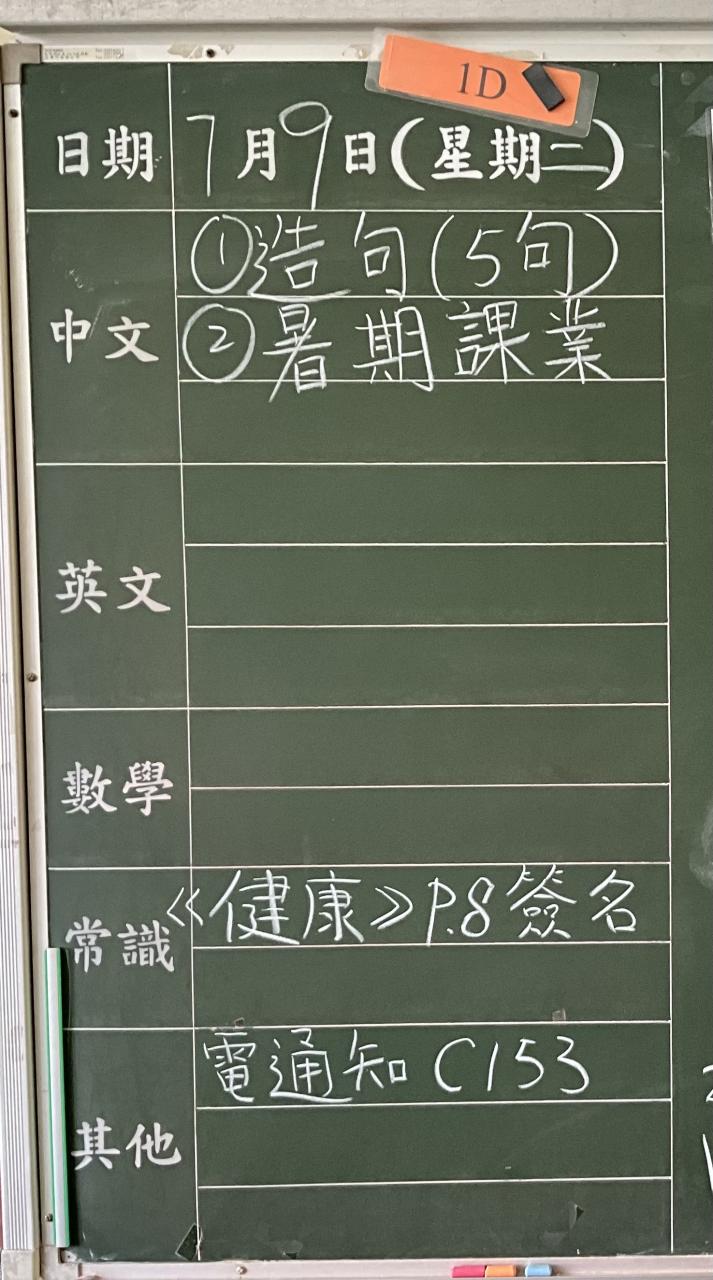 1D
日期 7月9日(星期二)
中文 ①造句(5句)
②暑期課業
英文
數學
常識 《健康》P.8簽名
其他 電通知C153